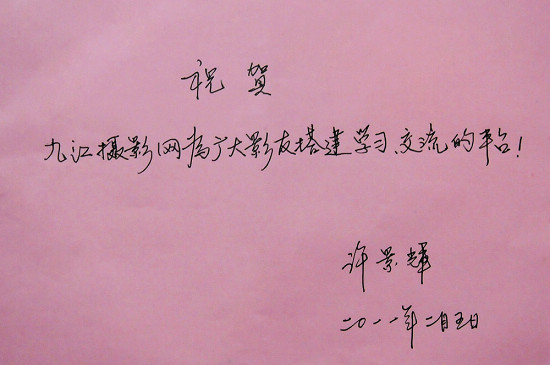 祝贺
九江摄影网为广大影友搭建学习、交流的平台！
许景辉
二〇一一年二月五日